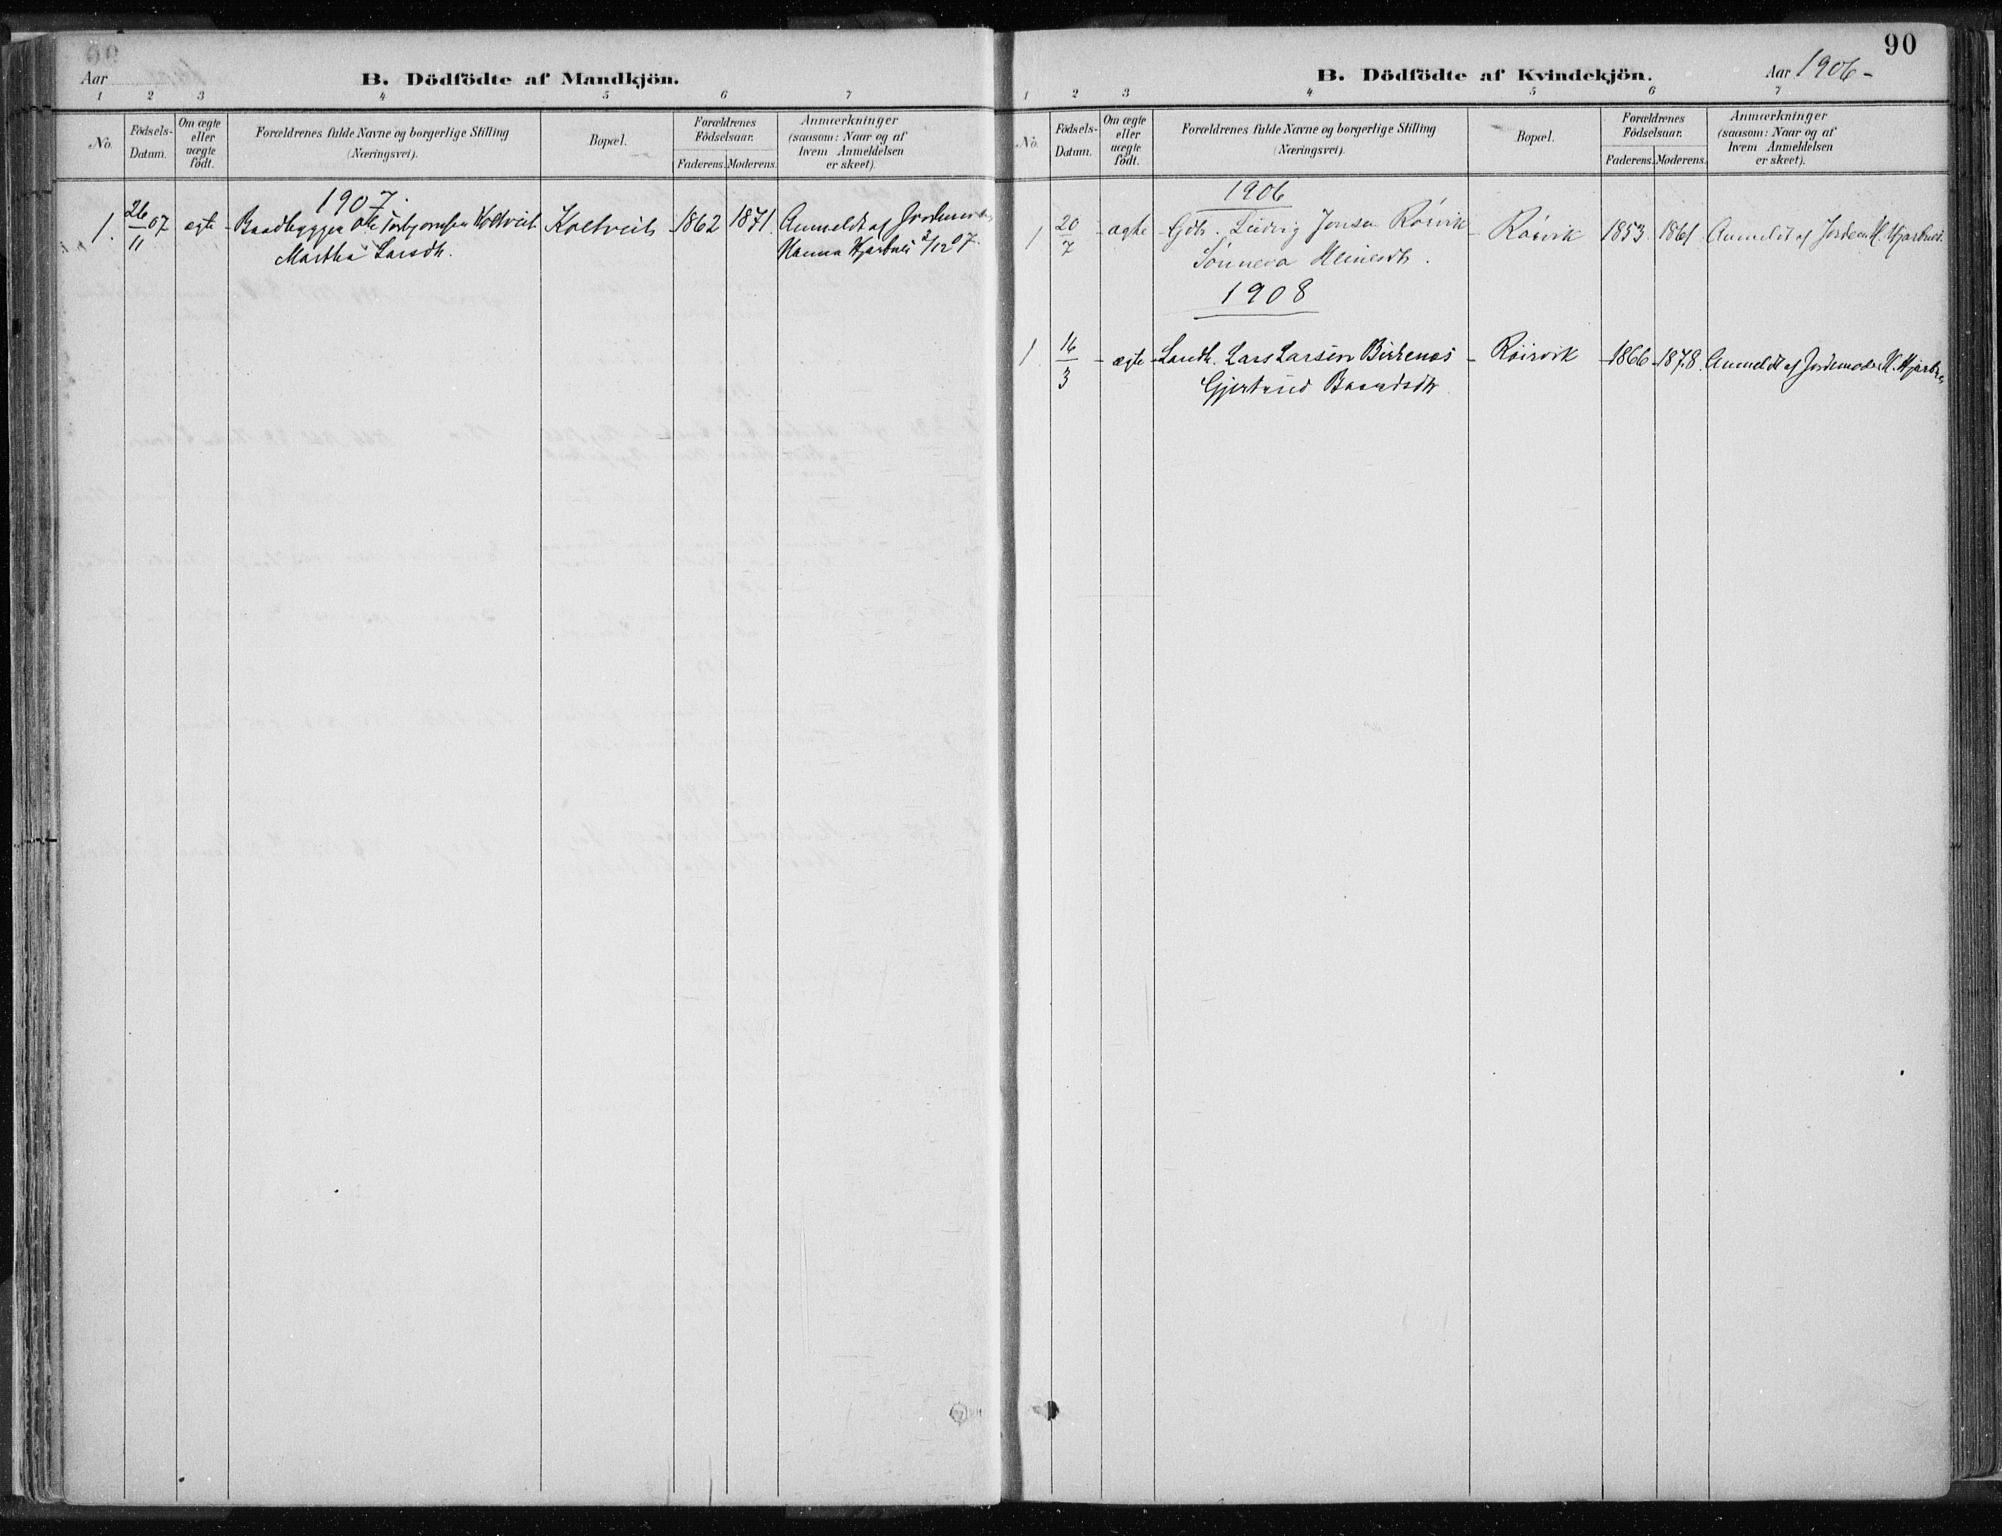 Aar
B. Dödfödte af Mandkjön.
1 2 3 4 5 6 7
No.
Födsels-Datum.
Om ægte eller uægte födt.
Forældrenes fulde Navne og borgerlige Stilling
(Næringsvei).
Bopæl.
Forældrenes Födselsaar.
Faderens. Moderens.
Anmærkninger
(saasom: Naar og af
hvem Anmeldelsen
er skeet).
1907.
1. 26/11 07 egte Baadbygger Ole Torbjørnsen Koltveit Koltveit 1862 1871 Anmeldt af Jordemor
Martha Larsdt. Hanna Hjartnes 2/12 07.
90
B. Dödfödte af Kvindekjön.
Aar 1906-
1 2 3 4 5 6 7
No.
Födsels-Datum.
Om ægte eller uægte födt.
Forældrenes fulde Navne og borgerlige Stilling
(Næringsvei).
Bopæl.
Forældrenes Födselsaar.
Faderens. Moderens.
Anmærkninger
(saasom: Naar og af
hvem Anmeldelsen
er skeet).
1906
1 20/7 - ægte - Gdb. Ludvig Jonsen Røirvik - Røirvik 1853 1861 Anmeldt af Jordem H. Hjartnes.
Sønneva Heinesdt.
1908
1. 16/3 - ægte - Landh. Lars Larsen Birkenes - Røirvik - 1866 - 1878. Anmeldt af Jordemoder H. Hjartnes
Gjertrud Baardsdt.